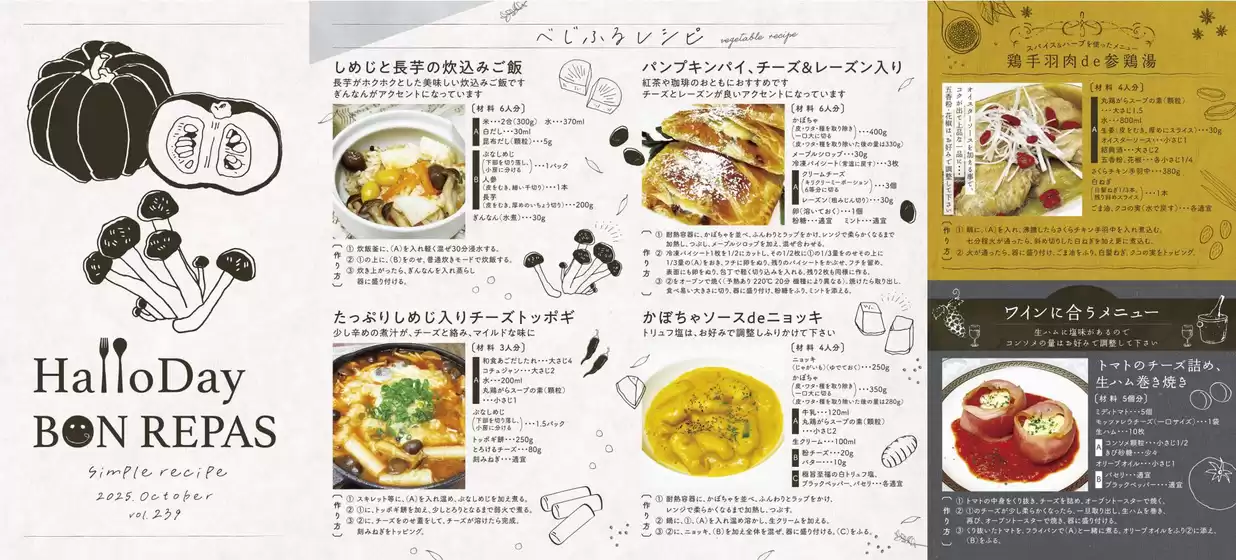 HalloDay
BON REPAS
simple recipe
2025. October
vol.239
べじふるレシピ vegetable recipe
しめじと長芋の炊込みご飯
長芋がホクホクとした美味しい炊込みご飯です
ぎんなんがアクセントになっています
〔材料 6人分〕
A
米・・・2合(300g) 水・・・370ml
白だし・・・30ml
昆布だし(顆粒)・・・5g
B
ぶなしめじ
(下部を切り落し、小房に分ける)・・・1パック
人参
(皮をむき、細い千切り)・・・1本
長芋
(皮をむき、厚めのいちょう切り)・・・200g
ぎんなん(水煮)・・・30g
〔作り方〕
① 炊飯釜に、(A)を入れ軽く混ぜ30分浸水する。
② ①の上に、(B)をのせ、普通炊きモードで炊飯する。
③ 炊き上がったら、ぎんなんを入れ蒸らし
器に盛り付ける。
パンプキンパイ、チーズ&レーズン入り
紅茶や珈琲のおともにおすすめです
チーズとレーズンが良いアクセントになっています
〔材料 6人分〕
かぼちゃ
(皮・ワタ・種を取り除き)
一口大に切る
(皮・ワタ・種を取り除いた後の量は330g)
・・・400g
メープルシロップ・・・30g
冷凍パイシート(常温に戻す)・・・3枚
A
クリームチーズ
(キリクリーミーポーション)
6等分に切る
・・・3個
レーズン(粗みじん切り)・・・30g
卵(溶いておく)・・・1個
粉糖・・・適宜 ミント・・・適宜
〔作り方〕
① 耐熱容器に、かぼちゃを並べ、ふんわりとラップをかけ、レンジで柔らかくなるまで
加熱し、つぶし、メープルシロップを加え、混ぜ合わせる。
② 冷凍パイシート1枚を1/2にカットし、その1/2枚に①の1/3量をのせその上に
1/3量の(A)をおき、フチに卵をぬり、残りのパイシートをかぶせ、フチを留め、
表面にも卵をぬり、包丁で軽く切り込みを入れる。残り2枚も同様に作る。
③ ②をオーブンで焼く(予熱あり 220℃ 20分 機種により異なる)。焼けたら取り出し、
食べ易い大きさに切り、器に盛り付け、粉糖をふり、ミントを添える。
たっぷりしめじ入りチーズトッポギ
少し辛めの煮汁が、チーズと絡み、マイルドな味に
〔材料 3人分〕
A
和食あごだしたれ・・・大さじ4
コチュジャン・・・大さじ2
水・・・200ml
丸鶏がらスープの素(顆粒)
・・・小さじ1
ぶなしめじ
(下部を切り落し、小房に分ける)・・・1.5パック
トッポギ餅・・・250g
とろけるチーズ・・・80g
刻みねぎ・・・適宜
〔作り方〕
① スキレット等に、(A)を入れ温め、ぶなしめじを加え煮る。
② ①に、トッポギ餅を加え、少しとろりとなるまで弱火で煮る。
③ ②に、チーズをのせ蓋をして、チーズが溶けたら完成。
刻みねぎをトッピング。
かぼちゃソースdeニョッキ
トリュフ塩は、お好みで調整しふりかけて下さい
〔材料 4人分〕
ニョッキ
(じゃがいも)(ゆでておく)・・・250g
かぼちゃ
(皮・ワタ・種を取り除き)
一口大に切る
(皮・ワタ・種を取り除いた後の量は280g)
・・・350g
A
牛乳・・・120ml
丸鶏がらスープの素(顆粒)
・・・小さじ2
生クリーム・・・100ml
B
粉チーズ・・・20g
バター・・・10g
C
極旨至福の白トリュフ塩、
ブラックペッパー、パセリ・・・各適宜
〔作り方〕
① 耐熱容器に、かぼちゃを並べ、ふんわりとラップをかけ、
レンジで柔らかくなるまで加熱し、つぶす。
② 鍋に、①、(A)を入れ温め溶かし、生クリームを加える。
③ ②に、ニョッキ、(B)を加え全体を混ぜ、器に盛り付ける。(C)をふる。
スパイス&ハーブを使ったメニュー
鶏手羽肉de参鶏湯
オイスターソースを加える事で、
コクが出て上品な一品に・・・
五香粉・花椒は、お好みで調整して下さい
〔材料 4人分〕
A
丸鶏がらスープの素(顆粒)
・・・大さじ1.5
水・・・800ml
生姜(皮をむき、厚めにスライス)・・・30g
オイスターソース・・・小さじ1
紹興酒・・・大さじ2
五香粉、花椒・・・各小さじ1/4
さくらチキン手羽中・・・380g
白ねぎ
(白髪ねぎ1/3本、残り斜めスライス)・・・1本
ごま油、クコの実(水で戻す)・・・各適宜
〔作り方〕
① 鍋に、(A)を入れ、沸騰したらさくらチキン手羽中を入れ煮込む。
七分程火が通ったら、斜め切りした白ねぎを加え更に煮込む。
② 火が通ったら、器に盛り付け、ごま油をふり、白髪ねぎ、クコの実をトッピング。
ワインに合うメニュー
生ハムに塩味があるので
コンソメの量はお好みで調整して下さい
トマトのチーズ詰め、
生ハム巻き焼き
〔材料 5個分〕
ミディトマト・・・5個
モッツァレラチーズ(一口サイズ)・・・1袋
生ハム・・・10枚
A
コンソメ顆粒・・・小さじ1/2
きび砂糖・・・少々
オリーブオイル・・・小さじ1
B
パセリ・・・適宜
ブラックペッパー・・・適宜
〔作り方〕
① トマトの中身をくり抜き、チーズを詰め、オーブントースターで焼く。
② ①のチーズが少し柔らかくなったら、一旦取り出し、生ハムを巻き、
再び、オーブントースターで焼き、器に盛り付ける。
③ くり抜いたトマトを、フライパンで(A)と一緒に煮る。オリーブオイルをふり②に添え、
(B)をふる。